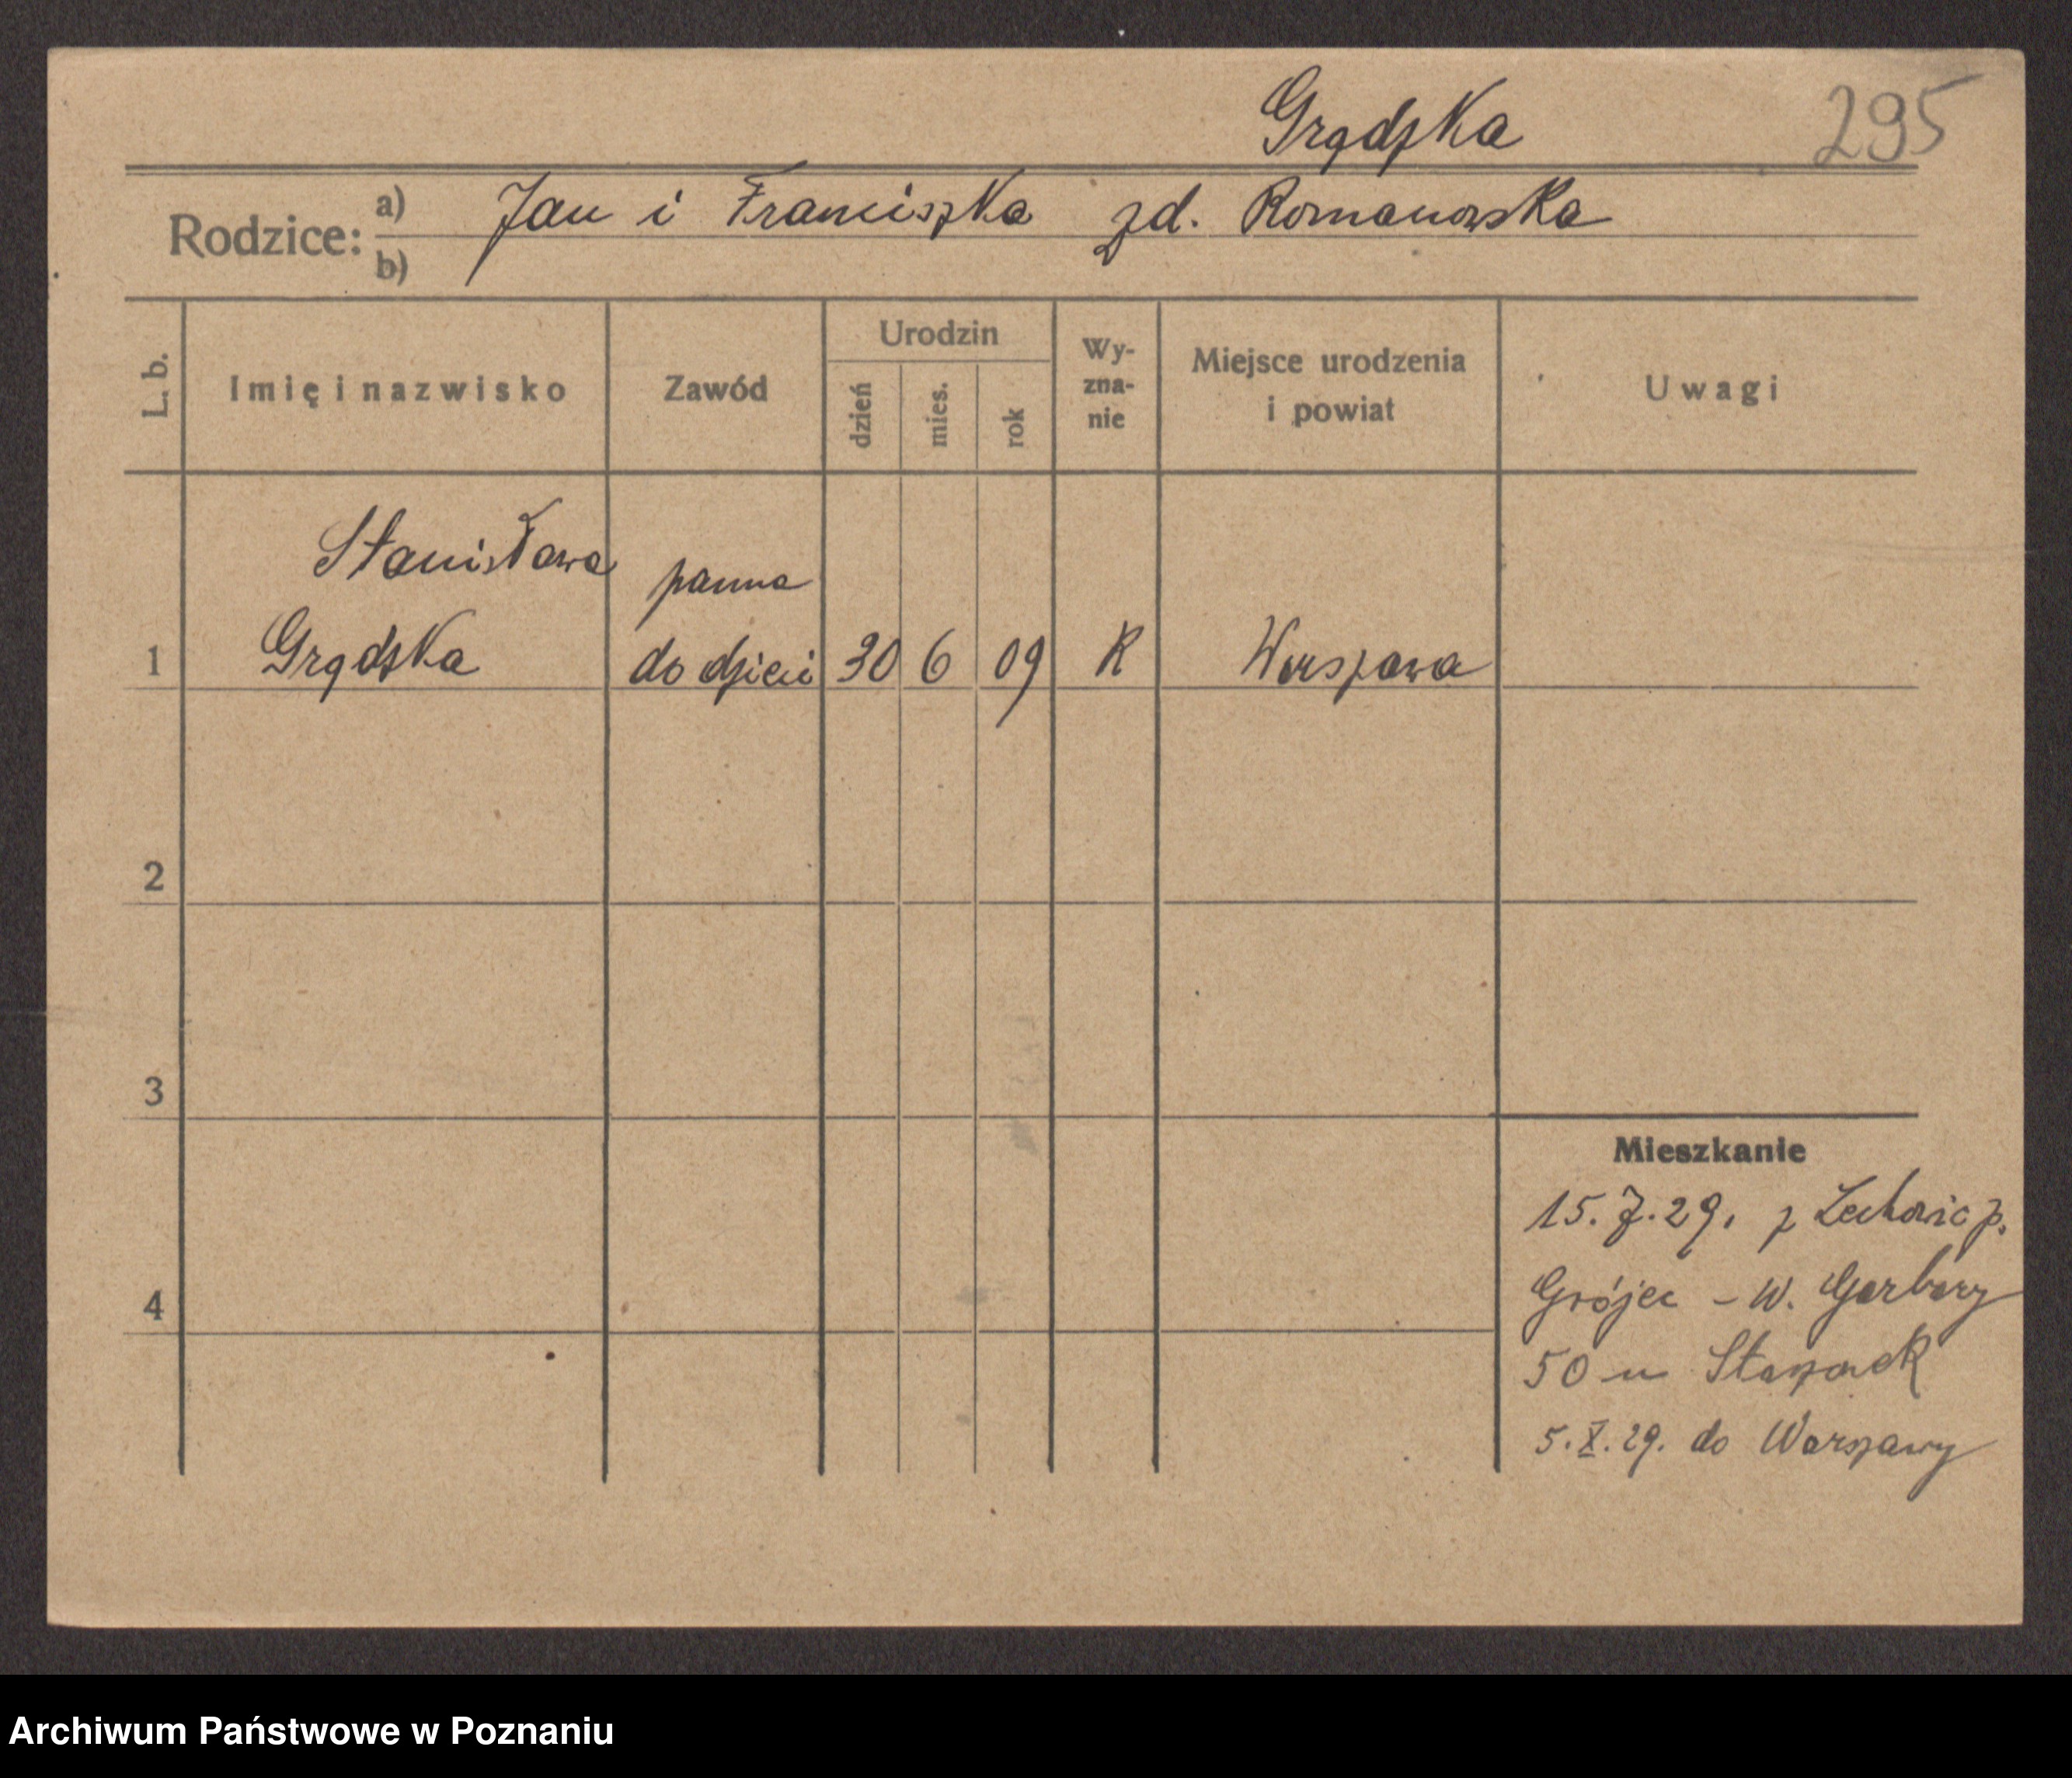 Grądzka
295
Rodzice: a) Jan i Franciszka zd. Romanowska
b)
L. b.
Imię i nazwisko
Zawód
Urodzin
dzień
mies.
rok
Wy-
zna-
nie
Miejsce urodzenia
i powiat
Uwagi
Stanisława
panna
1 Grądzka do dzieci 30 6 09 R Warszawa
2
3
4
Mieszkanie
15.7.29. z
Grójec - W. Garbary
50 u
5.X.29. do Warszawy
Archiwum Państwowe w Poznaniu